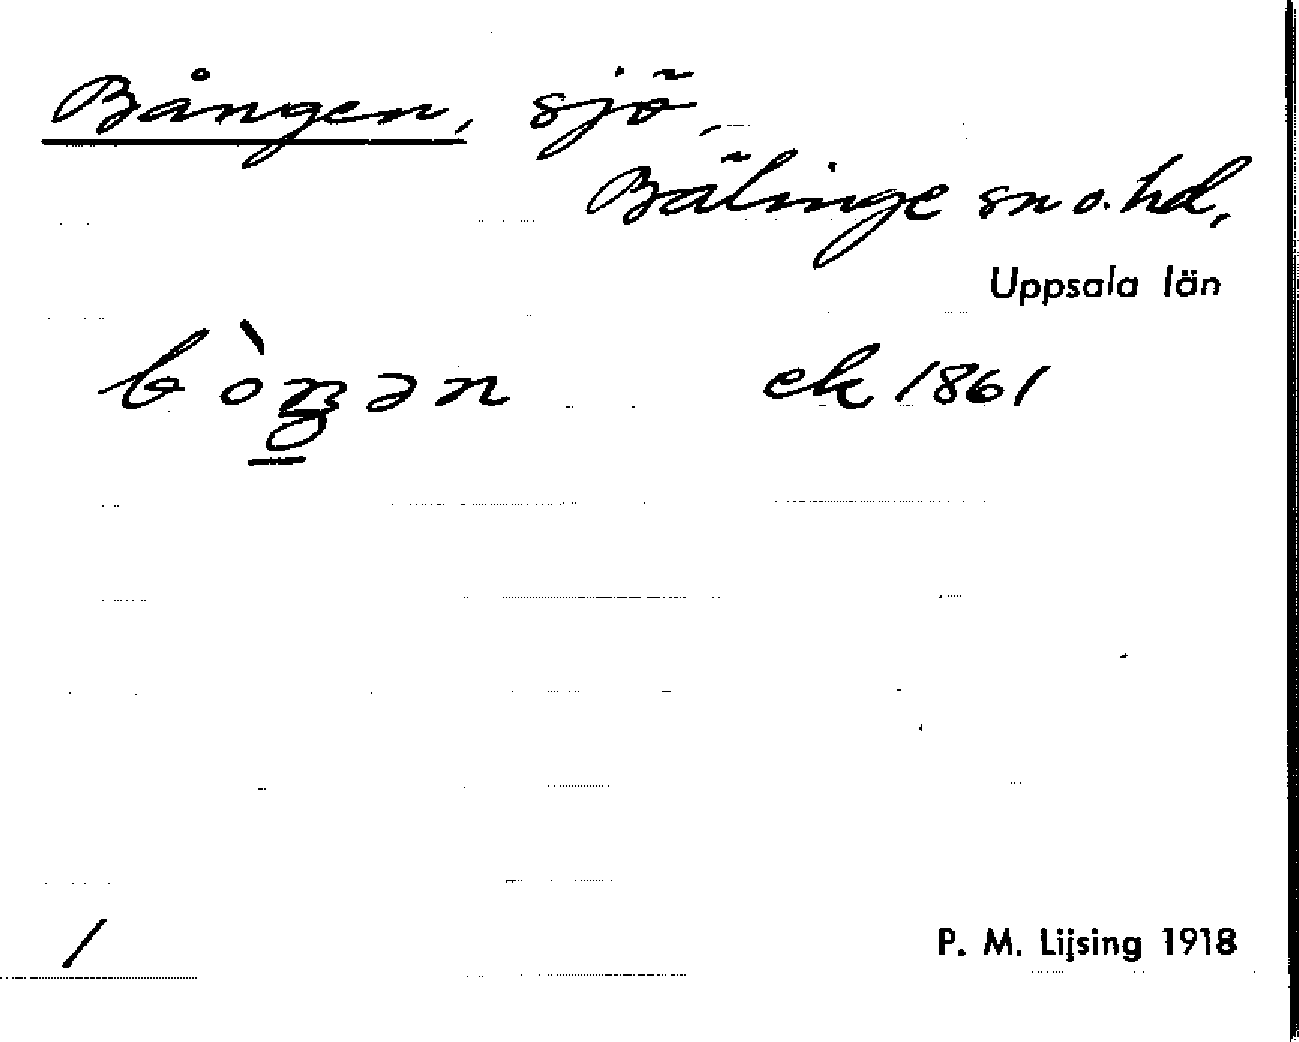 Bången, sjö,
Bälinge sn o. hd,
Uppsala län
ek 1861
1
P. M. Lijsing 1918